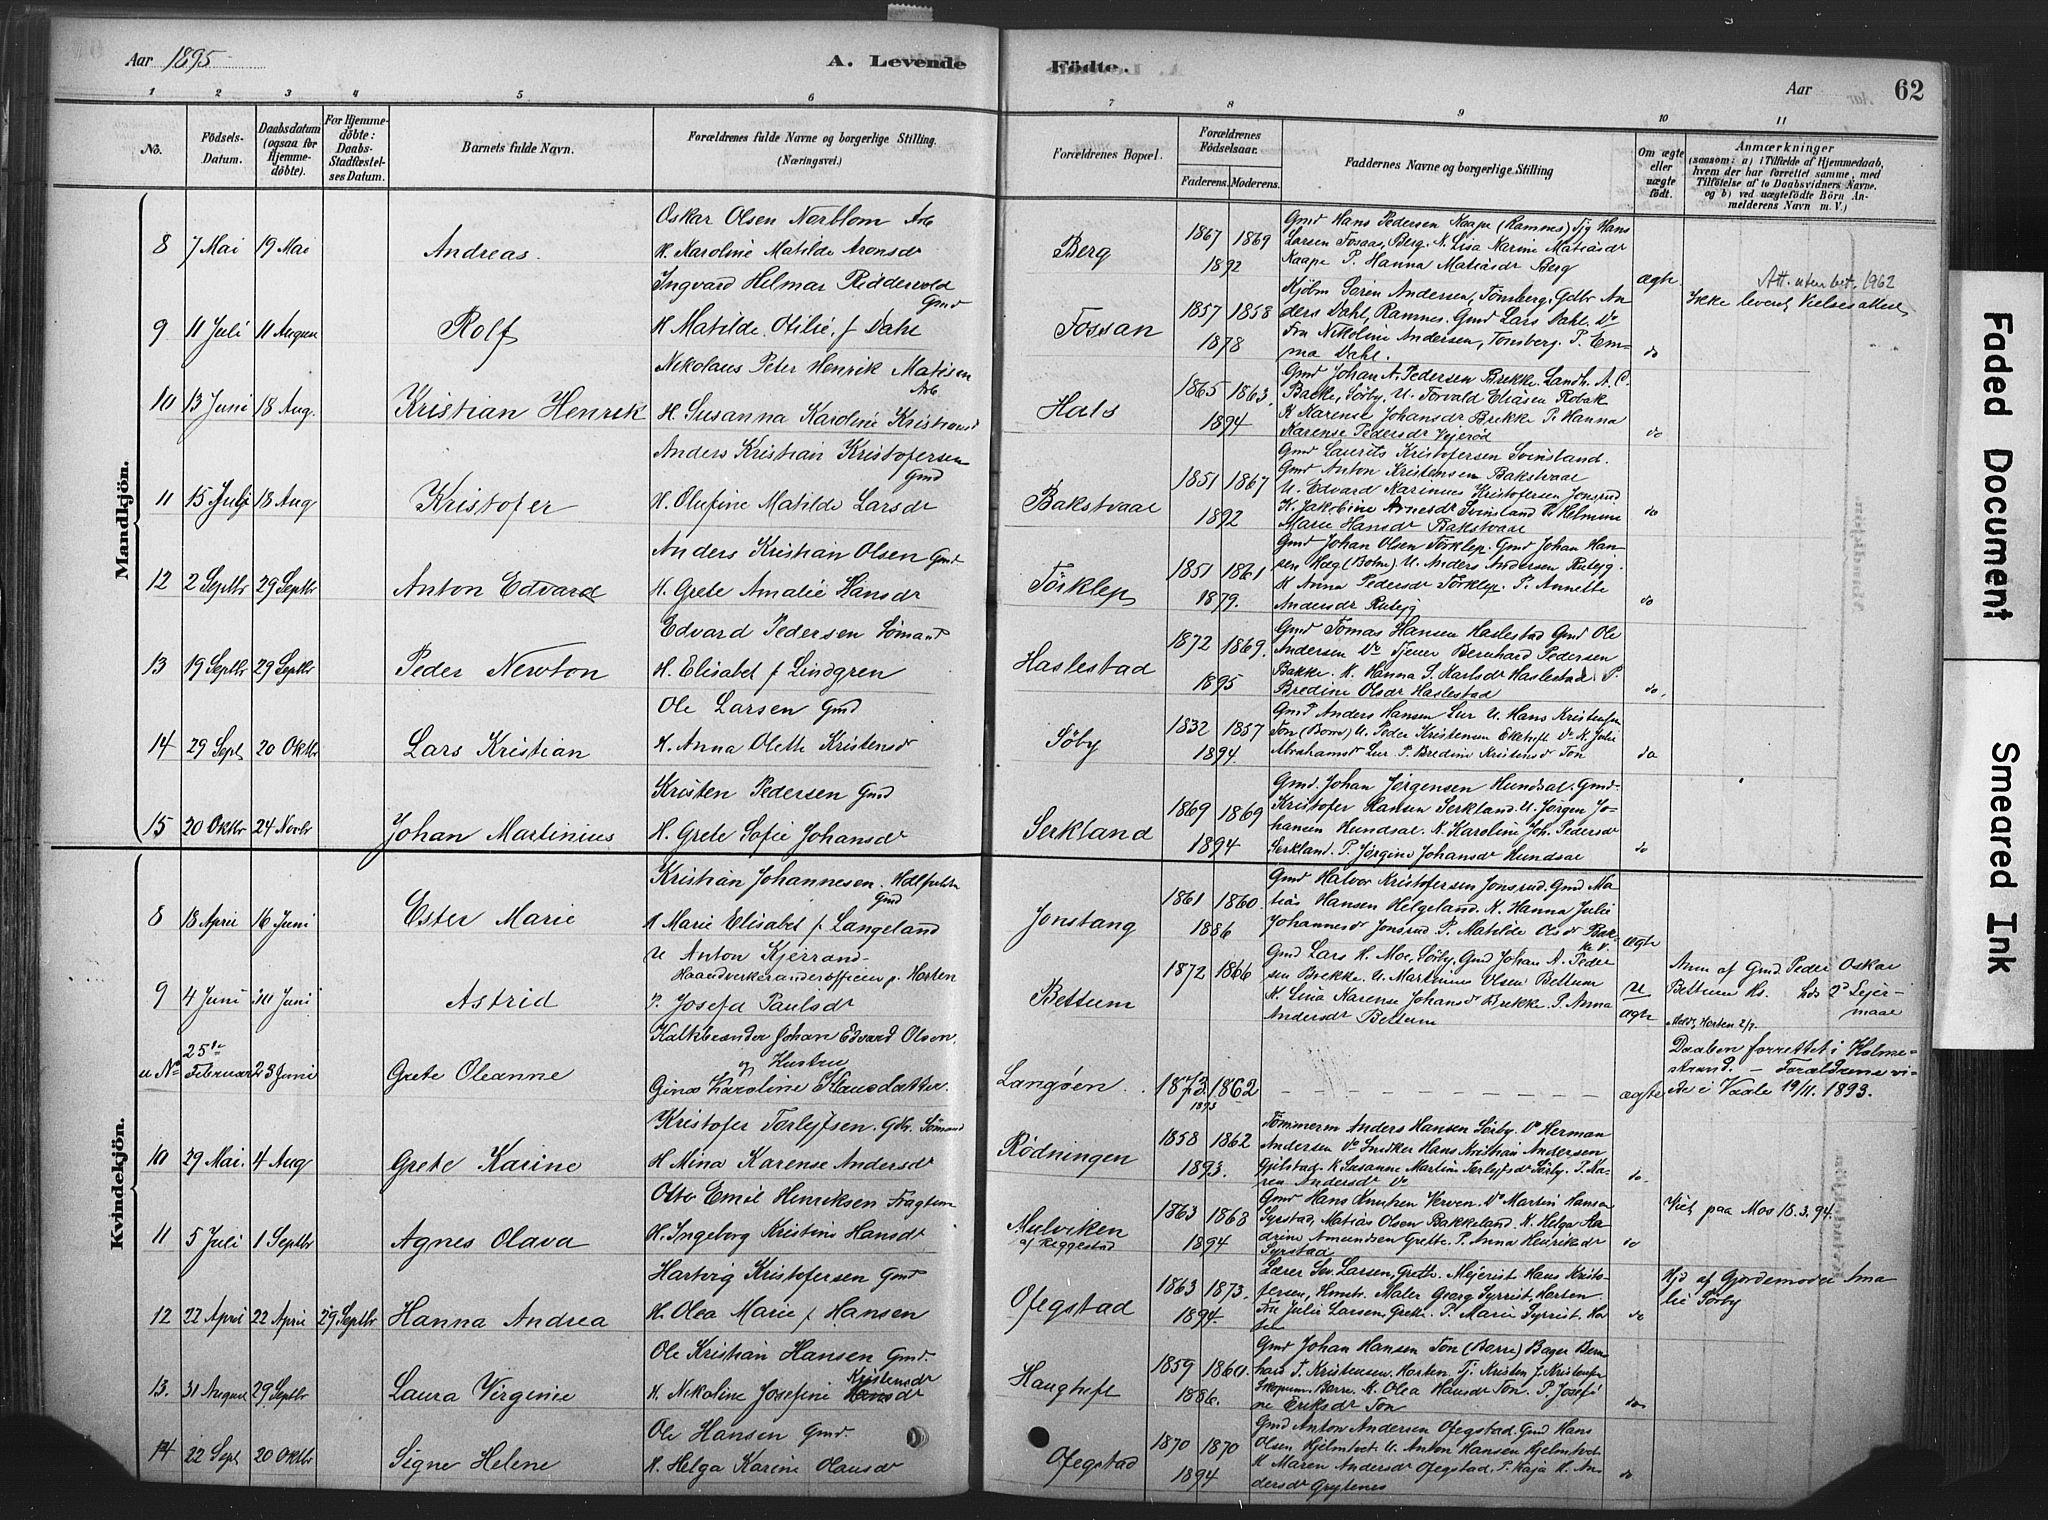 Aar 1895
A. Levende
Fødte.
Aar
62
1 2 3 4 5 6 7 8 9 10 11
No.
Fødsels-
Datum.
Daabsdatum
(ogsaa for
Hjemme-
døbte).
For Hjemme-
døbte:
Daabs-
Stadfæstel-
ses Datum.
Barnets fulde Navn.
Forældrenes fulde Navne og borgerlige Stilling.
(Næringsvei.)
Forældrenes Bopæl.
Forældrenes
Fødselsaar.
Faderens. Moderens.
Faddernes Navne og borgerlige Stilling
Om ægte
eller
uægte
født.
Anmærkninger
(saasom: a) i Tilfælde af Hjemmedaab,
hvem der har forrettet samme, med
Tilføielse af to Daabsvidners Navne.
og b) ved uægtefødte Børn An-
melderens Navn m. V.)
Mandkjøn.
8 7 Mai 19 Mai Andreas.
Oskar Olsen Nærblom Arb
H. Karoline Matilde Aronsdr
Berg
1867 1869
1892
Gmd Hans Pedersen Kaape (Ramnes) Tjg Hans
Larsen Fosaas, Berg. K. Lisa Karine Matiasdr
Kaape P. Hanna Matiasdr Berg
ægte
9 11 Juli 11 August Rolf
Ingvard Helmar Riddervold
Gmd
H Matilde Otilie f Dahl
Fossan
1857 1858
1878
Kjøbm Søren Andersen, Tønsberg, Gdbr An-
ders Dahl, Ramnes. Gmd Lars Dahl. Do
Fru Nikoline Andersen, Tønsberg. P. Em-
ma Dahl.
do
Att. uten bet. 1962
Ikke levent Vielsesattest
10 13 Juni 18 Aug. Kristian Henrik
Nikolaus Peter Henrik Matisen
Arb
H. Susanna Karoline Kristiansd
Hals
1865 1863.
1894
Gmd Johan A. Pedersen Brekke. Landh. A. C.
Bakke, Søby. U. Torvald Eliasen Robak
K Karense Johansdr Brekke P. Hanna
Karense Pedersdr Vejerød
do
11 15 Juli 18 Aug Kristofer
Anders Kristian Kristofersen
Gmd
H. Olufine Matilde Larsdr
Bakstvaal
1851 1867
1892
Gmd Laurits Kristofersen Svinsland.
Gmd Anton Kristensen Bakstvaal
U. Edvard Marenius Kristofersen Jonsrud
K. Jakobine Arnesdr Svinsland P. Helmine
Marie Hansdr Bakstvaal
do
12 2 Septbr 29 Septbr Anton Edvard
Anders Kristian Olsen Gmd
H. Grete Amalie Hansdr
Tørklep
1851 1861
1879.
Gmd Johan Olsen Tørklep. Gmd Johan Han-
sen Hæg (Botne) U. Anders Andersen Rubejg.
K Anna Pedersdr Tørklep. P. Annette
Andersdr Rubejg
do
13 19 Septbr 29 Septbr Peder Newton
Edvard Pedersen Sømand
H. Elisabet f Lindgren
Haslestad
1872 1869.
1895
Gmd Tomas Hansen Haslestad Gmd Ole
Andersen Do Tjener Bernhard Pedersen
Bakke. K. Hanna S. Karlsdr Haslestad. P.
Bredine Olsdr Haslestad
do.
14 29 Sept 20 Oktbr Lars Kristian
Ole Larsen Gmd
H. Anna Olette Kristensdr
Søby
1832 1857
1894.
Gmd Anders Hansen Lur U. Hans Kristensen
Ton (Borre) U. Peder Kristensen Ekeheft Do K. Julie
Abrahamsdr Lur P. Bredine Kristensdr Ton
do
15 20 Oktbr 24 Novbr Johan Martinius
Kristen Pedersen Gmd
H. Grete Sofie Johansdr
Serkland
1869 1869
1894
Gmd. Johan Jørgensen Hundsal. Gmd-
Kristofer Hansen Serkland. U. Jørgen Jo-
hansen Hundsal. K. Karoline Joh. Pedersdr
Serkland. P. Jørgine Johansdr Hundsal
do
Kvindekjøn.
8 18 April 16 Juni Ester Marie
Kristian Johannesen.
Gmd
H Marie Elisabet f. Langeland
Jonstang
1861 1860.
1886
Gmd Halvor Kristofersen Jonsrud. Gmd Ma-
tias Hansen Helgeland. K. Hanna Julie
Johannesdr Jonsrud P. Matilde Olsdr Bak-
ke.
ægte
9 4 Juni Juni Astrid
U Anton Kjerrand-
Haandverkerunderofficier p. Horten
P. Josefa Paulsdr
Bettum
1872 1866
Gmd Lars H. Moe, Søby. Gmd Johan A. Peder
sen Brekke. U. Martinius Olsen Bettum
K. Lina Karense Johansdr Brekke. P. Anna
Andersdr Bettum
u
ægte
Anm af Gmd Peder Oskar
Bettum Hs. hds 2d Lejer-
maal
Meldt Horten 2/7.
u No 25de
Februar 23 Juni Grete Oleanne
Kalkbrænder Johan Edvard Olsen
og Hustru
Gina Karoline Klausdatter
Langøen.
1873. 1862
1893
ægte
Daaben forrettet i Holme-
strand. - Forældrene vi-
ede i Vaale 19/11. 1893.
10 29 Mai. 4 Aug Grete Karine
Kristofer Torlejfsen. Gbr. Sømand
H Mina Karense Andersdr
Rødningen
1858 1862
1893.
Tømmerm Anders Hansen Sørby. Do Herman
Andersen Do Snedker Hans Kristian Andersen
Gjelstad. K Susanne Martine Torlejfsdr Sørby. P. Ka-
ren Andersdr Do
do.
11 5 Juli 1 Septbr Agnes Olava
Otto Emil Henriksen Fragtem
H. Ingeborg Kristine Hansdr
Mulviken
af Reggestad
1863 1868
1894
Gmd Hans Knutsen Verven. Do Martin Hansen
Syrstad, Matias Olsen Bakkeland. K. Helga Ka-
drine Amundsen Grette. P. Anna Henriksdr
Syrstad
do
Viet paa Mos 18.3.94.
12 22 April 22 April 29 Septbr Hanna Andrea
Hartvig Kristofersen Gmd
H. Olea Marie f Hansen
Ofegstad
1863 1873.
1894.
Lærer Sev. Larsen, Grette. Mejerist Hans Kristo-
fersen, Hmstr. Maler Georg Syrrist, Horten.
Fru Julie Larsen, Grette. P. Marie Syrrist. Hor-
ten
do
Hjd af Gjordemoder Ama
lie Sørby
13. 31 August 29 Septbr Laura Virginie
Ole Kristian Hansen Gmd.
Kristensdr
H. Nikoline Josefine Hansdr
Haugheft
1859 1860.
1886.
Gmd Johan Hansen Ton (Borre) Bager Bern-
hard T. Kristensen. Horten. Tj. Kristen J. Kristensen
Skopum. Borre. K. Olea Hansdr Ton. P. Josefi-
ne Eriksdr Ton
do
14 22 Sept 20 Oktbr Signe Helene
Ole Hansen Gmd.
H. Helga Karine Olausdr
Ofegstad
1870 1870
1894
Gmd Anton Andersen Ofegstad. Gmd Hans
Olsen Hjelmtvet. U. Anton Hansen Hjelmtvet.
K Maren Andersdr Ofegstad. P. Kaja K. An-
dersdr Grytenes
do
Faded Document
Smeared Ink